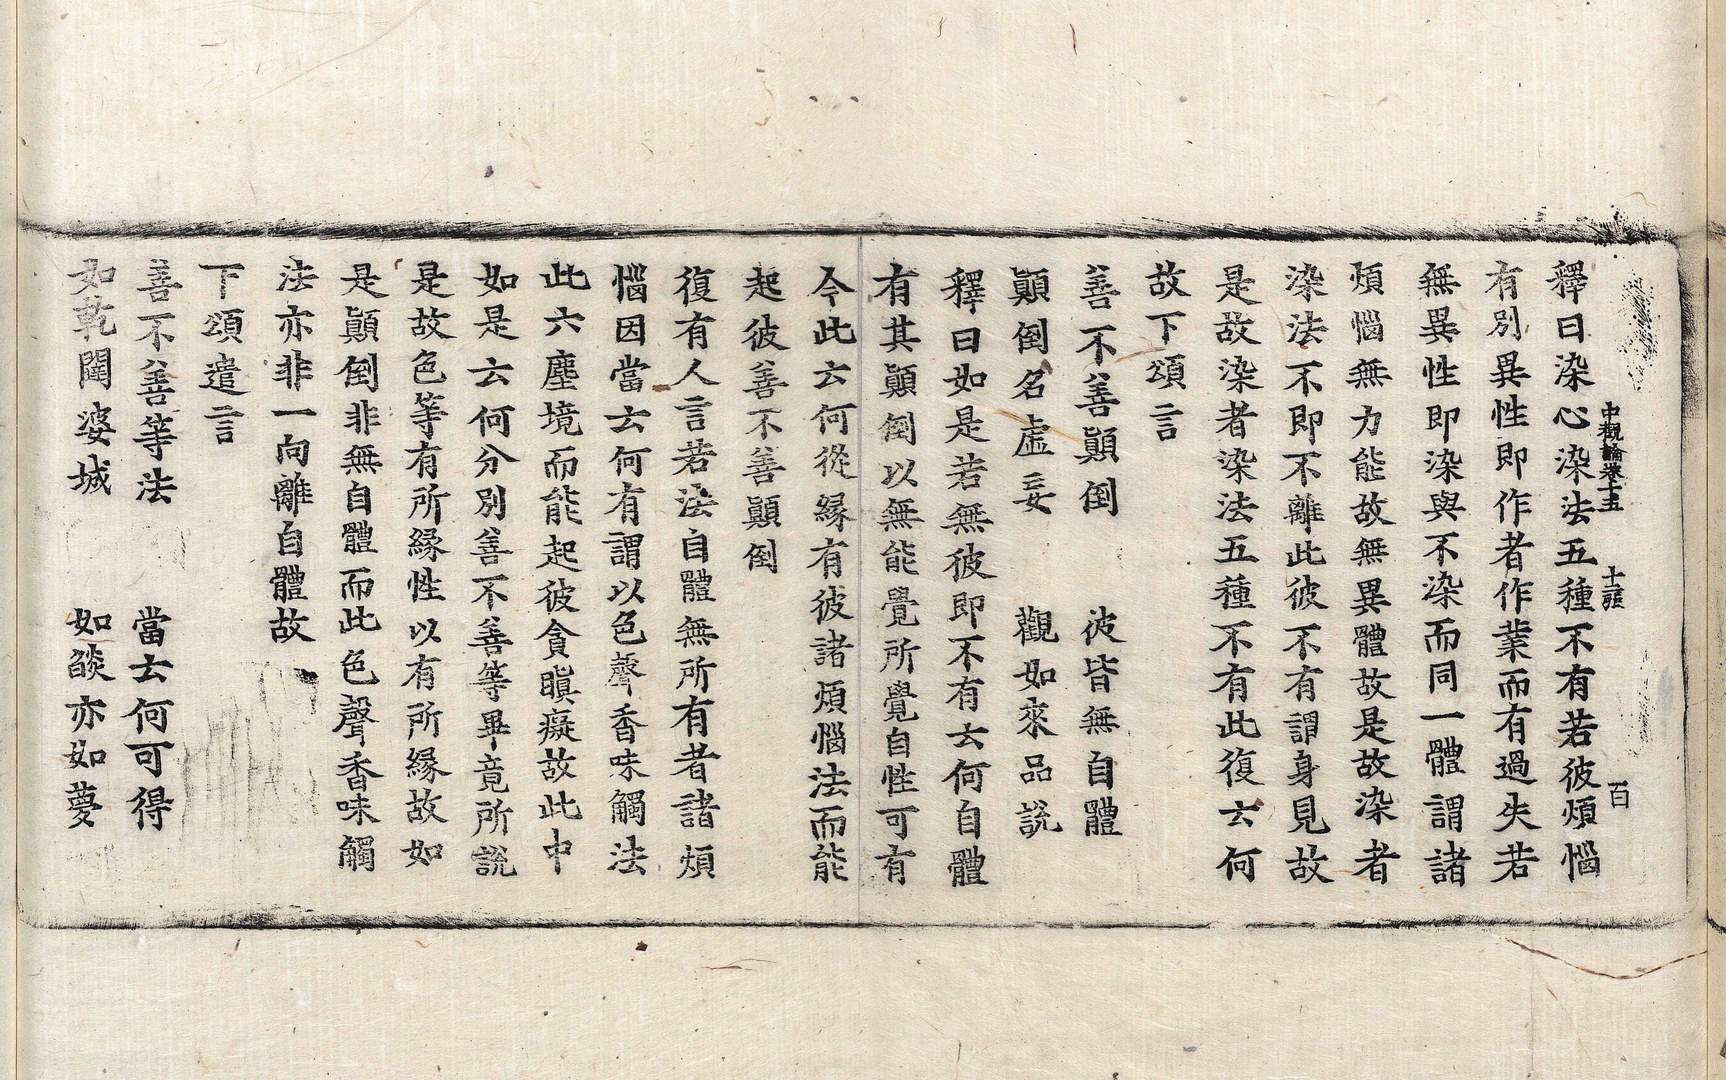 中觀論卷十五　十張　百
釋曰染心染法五種不有若彼煩惱
有別異性即作者作業而有過失若
無異性即染與不染而同一體謂諸
煩惱無力能故無異體故是故染者
染法不即不離此彼不有謂身見故
是故染者染法五種不有此復云何
故下頌言
善不善顛倒　彼皆無自體
顛倒名虛妄　觀如來品說
釋曰如是若無彼即不有云何自體
有其顛倒以無能覺所覺自性可有
今此云何從緣有彼諸煩惱法而能
起彼善不善顛倒
復有人言若法自體無所有者諸煩
惱因當云何有謂以色聲香味觸法
此六塵境而能起彼貪瞋癡故此中
如是云何分別善不善等畢竟所說
是故色等有所緣性以有所緣故如
是顛倒非無自體而此色聲香味觸
法亦非一向離自體故
下頌遣言
善不善等法　當云何可得
如乾闥婆城　如燄亦如夢